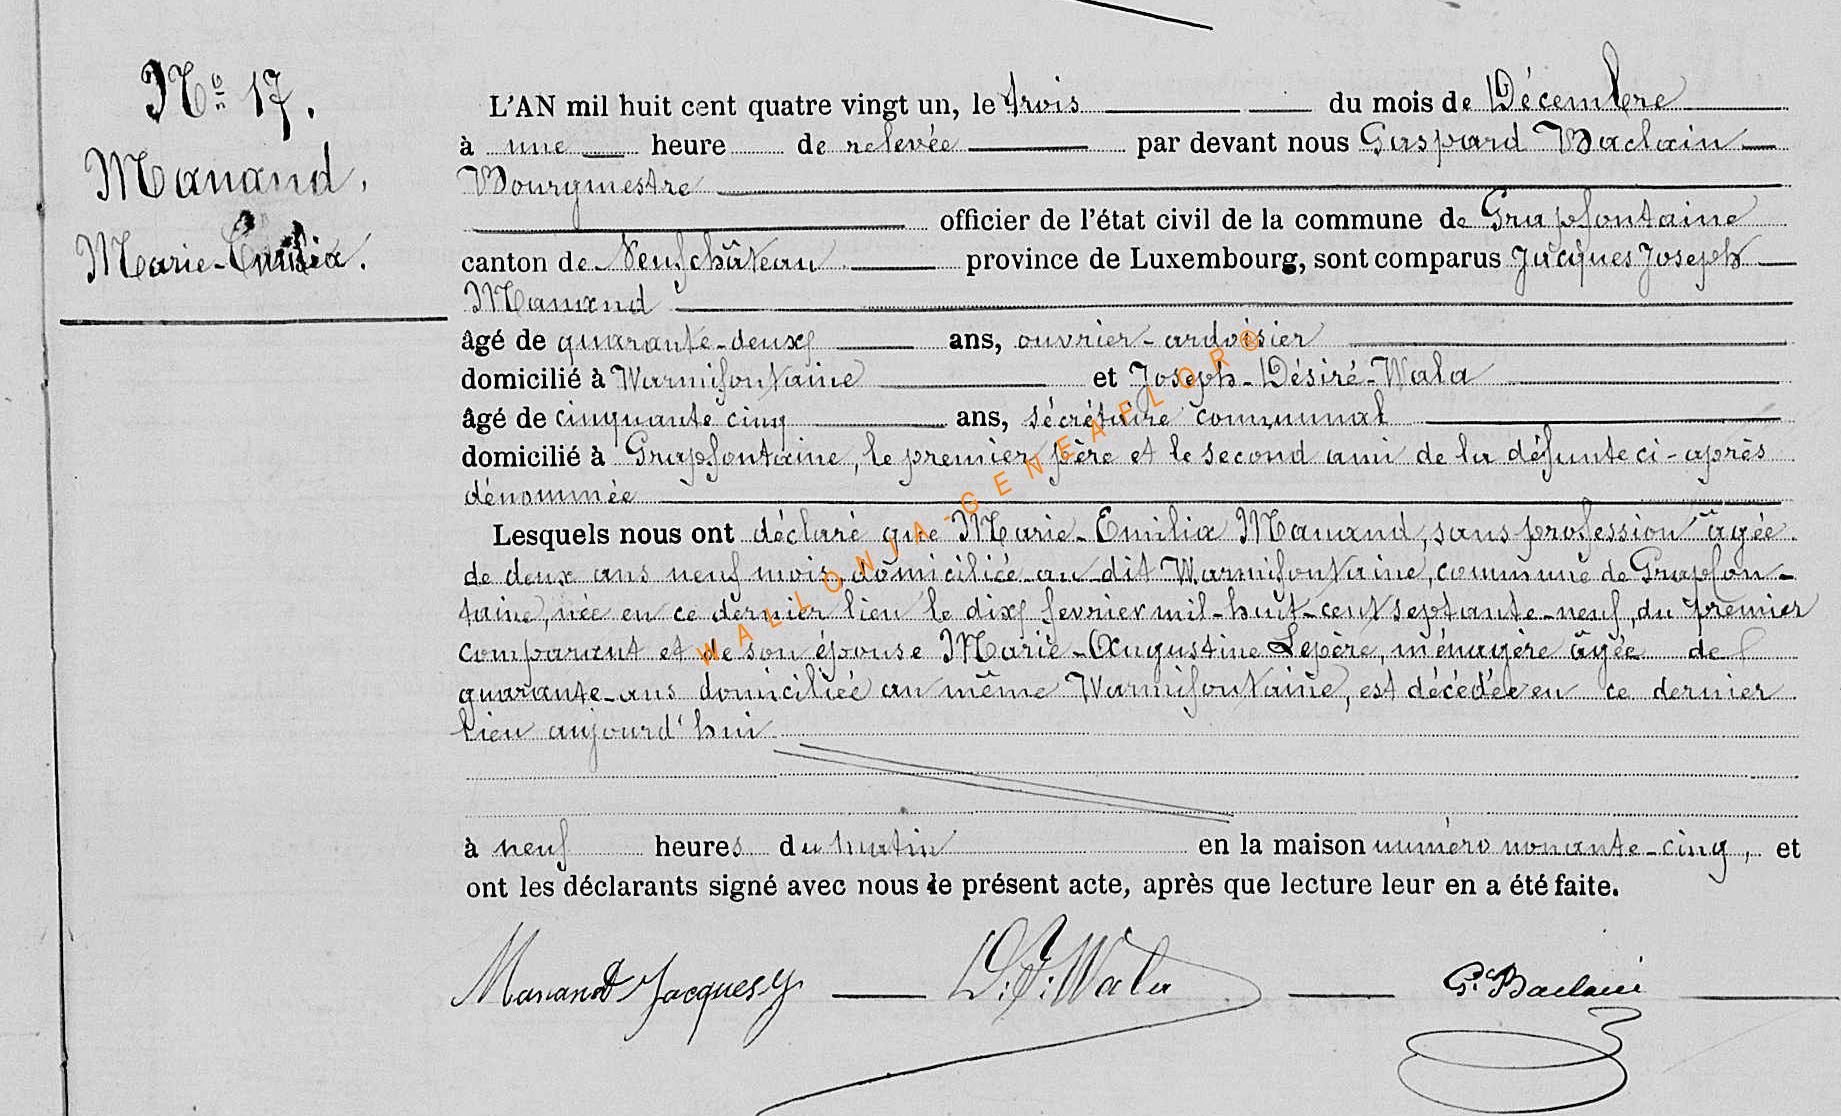 Nº 17.
Manand,
Marie-Emilia.
L'AN mil huit cent quatre vingt un, le trois du mois de Décembre
à une heure de relevée par devant nous Gaspard Baclain
Bourgmestre
officier de l'état civil de la commune de Grapfontaine
canton de Neufchâteau province de Luxembourg, sont comparus Jacques Joseph
Manand
âgé de quarante-deux ans, ouvrier-ardoisier
domicilié à Warmifontaine et Joseph-Désiré-Wala
âgé de cinquante cinq ans, sécrétaire communal
domicilié à Grapfontaine, le premier père et le second ami de la défunte ci-après
dénommée
Lesquels nous ont déclaré que Marie-Emilia Manand, sans profession âgée
de deux ans neuf mois domiciliée au dit Warmifontaine, commune de Grapfon-
taine, née en ce dernier lieu le dix février mil-huit-cent septante-neuf, du premier
comparant et de son épouse Marie-Augustine Lepère, ménagère âgée de
quarante-ans domiciliée au même Warmifontaine, est décédée en ce dernier
lieu aujourd'hui
à neuf heures du matin en la maison numéro nonante-cinq, et
ont les déclarants signé avec nous le présent acte, après que lecture leur en a été faite.
Manand Jacques J. D.J. Wala G. Baclain
WALLONIA-GENEAFLOR®